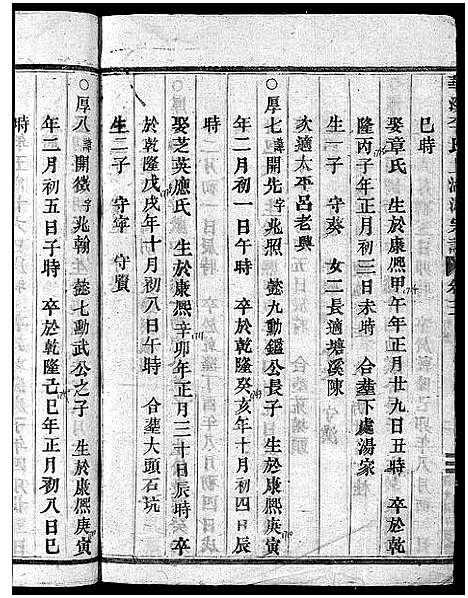 巳時
娶章氏 生於康熙甲午年正月廿九日丑時 卒於乾
隆丙子年正月初三日未時 合葬下處湯家
生一子 守葵 女二長適塘溪陳
次適太平呂老興
○厚七諱開先字兆照 懿九勳鑑公長子 生於康熙庚寅
年二月初一日午時 卒於乾隆癸亥年十月初四日辰
時
娶芝英應氏 生於康熙辛卯年正月三十日辰時 卒
於乾隆戊戌年十月初八日午時 合葬大頭石坑
生二子 守寧 守賢
○厚八諱開徵字兆翰 懿七勳武公之子 生於康熙庚寅
年三月初五日子時 卒於乾隆己巳年正月初八日巳
時